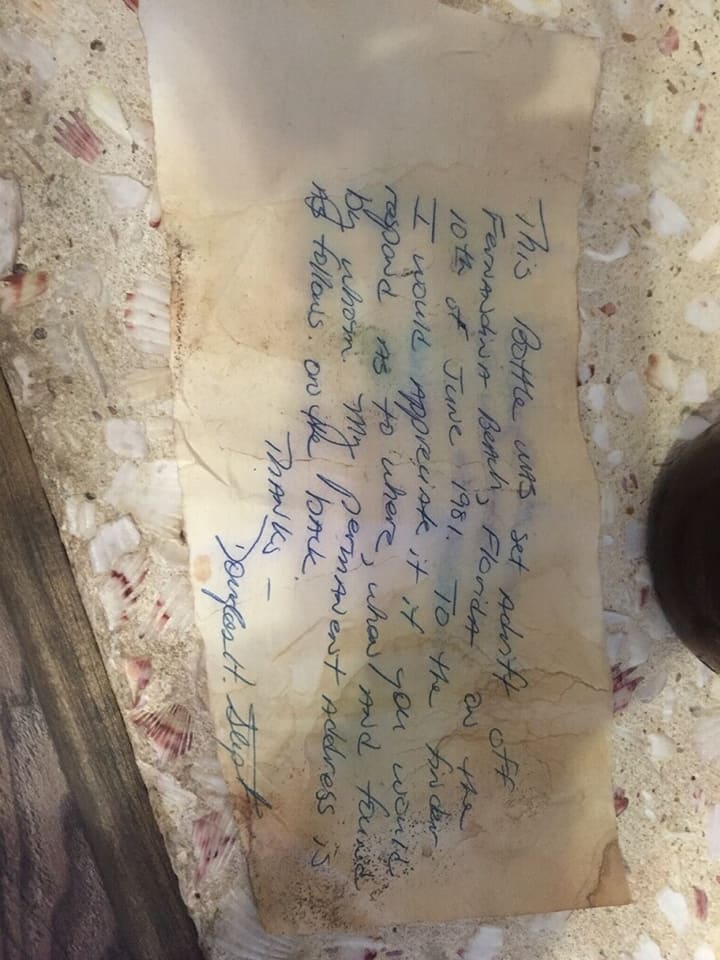 This Bottle was set Adrift off
Fernandina Beach, Florida on the
10th of June 1981. To the finder
I would appreciate it if you would
respond as to where, when and found
by whom. My permanent address is
as follows. on the back.
Thanks -
Douglas H.